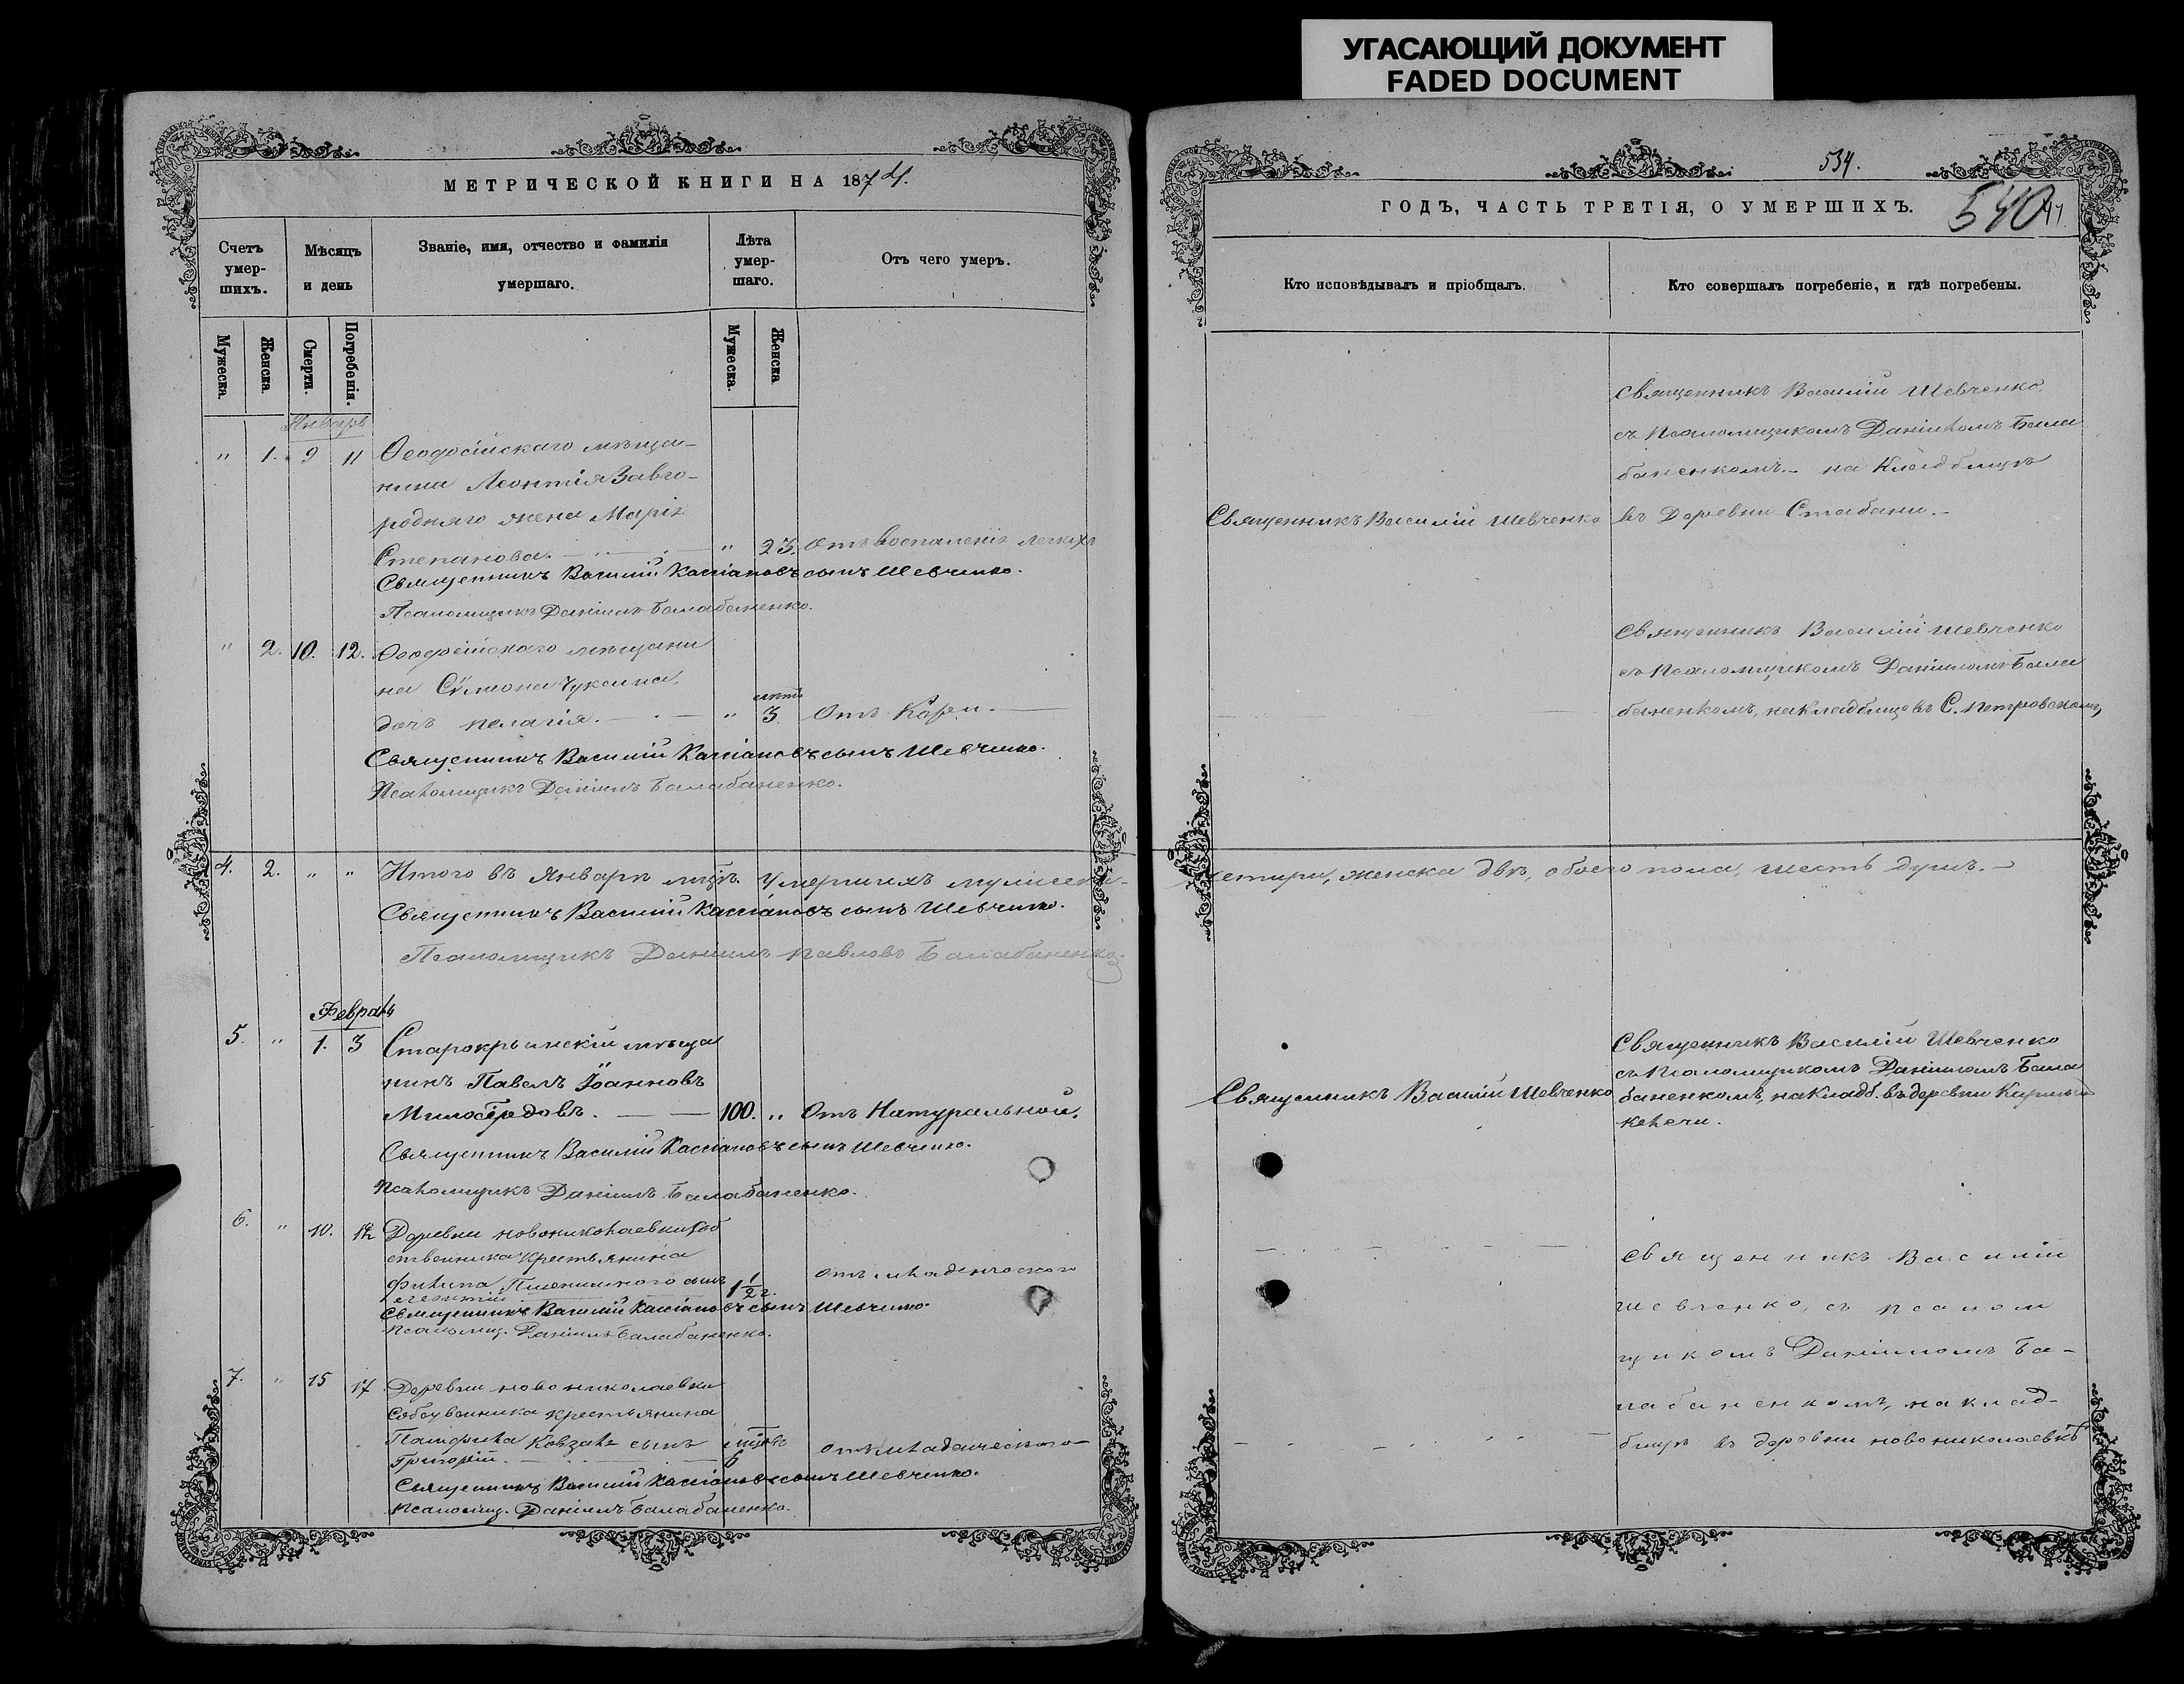 УГАСАЮЩИЙ ДОКУМЕНТ
FADED DOCUMENT
МЕТРИЧЕСКОЙ КНИГИ НА 1874.
Счетъ умер-шихъ.
Мѣсяцъ и день
Званіе, имя, отчество и фамилія умершаго.
Лѣта умер-шаго.
Отъ чего умеръ.
Мужеска.
Женска
Смерти.
Погребенія.
Мужеска.
Женска
Январь
" 1. 9 11 Ѳеодосійскаго мѣщан-
нина Леонтія Завго-
родняго жена Марія
Степанова. " 23. Отъ воспаленія легкихъ
Священникъ Василій Кассіановъ сынъ Шевченко.
Псаломщикъ Даніилъ Балабаненко.
" 2. 10. 12. Ѳеодосійскаго мѣщани
на Сѵмеона
дочь Пелагія. " лѣтъ 3 Отъ Кори.
Священникъ Василій Кассіановъ сынъ Шевченко.
Псаломщикъ Даніилъ Балабаненко.
4. 2. " " Итого въ Январѣ мцѣ. Умершихъ мужеска-
Священникъ Василій Кассіановъ сынъ Шевченко.
Псаломщикъ Даніилъ Павловъ Балабаненко.
Февраль
5. " 1. 3 Старокрымскій мѣща
нинъ Павелъ Іоанновъ
Милосердовъ. 100. " Отъ Натуральной.
Священникъ Василій Кассіановъ сынъ Шевченко.
Псаломщикъ Даніилъ Балабаненко.
6. " 10. 12 Деревни Новониколаевки соб
ственника крестьянина
Филипа сынъ
1 1/2 г. отъ младенческого
Священникъ Василій Кассіановъ сынъ Шевченко.
Псаломщ. Даніилъ Балабаненко.
7. " 15 17 Деревни Новониколаевки
собственника крестьянина
Памфила Ковзаля сынъ
Григорій. мцовъ 6 отъ младенческого
Священникъ Василій Кассіановъ сынъ Шевченко.
Псаломщ. Даніилъ Балабаненко.
534.
ГОДЪ, ЧАСТЬ ТРЕТІЯ, О УМЕРШИХЪ.
540
41
Кто исповѣдывалъ и пріобщалъ.
Кто совершалъ погребеніе, и гдѣ погребены.
Священникъ Василій Шевченко
съ Псаломщикомъ Даніиломъ Бала
баненкомъ. на Кладбищѣ
Священникъ Василій Шевченко
въ Деревни Стабани.
Священникъ Василій Шевченко
съ Псаломщикомъ Даніиломъ Бала
баненкомъ, на кладбище въ С. Петровскомъ,
четыри, женска двѣ, обоего пола, шесть душъ.
Священникъ Василій Шевченко
съ Псаломщикомъ Даніиломъ Бала
Священникъ Василій Шевченко
баненкомъ, на кладб. въ деревни
Священникъ Василій
Шевченко, съ псалом
щикомъ Даніиломъ Ба-
лабаненкомъ, на клад-
бищѣ въ деревни Новониколаевкѣ